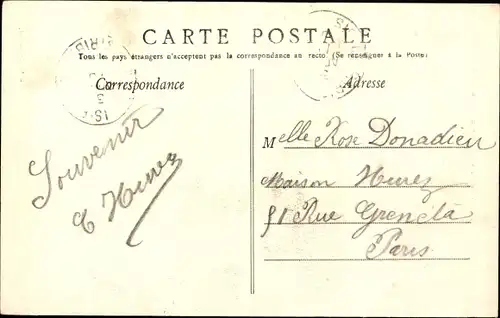 CARTE POSTALE
Tous les pays étrangers n'acceptent pas la correspondance au recto (Se renseigner à la Poste)
Correspondance
Adresse
Souvenir
Melle Rose Donadieu
Maison Hurez
51 Rue Grenéta
Paris